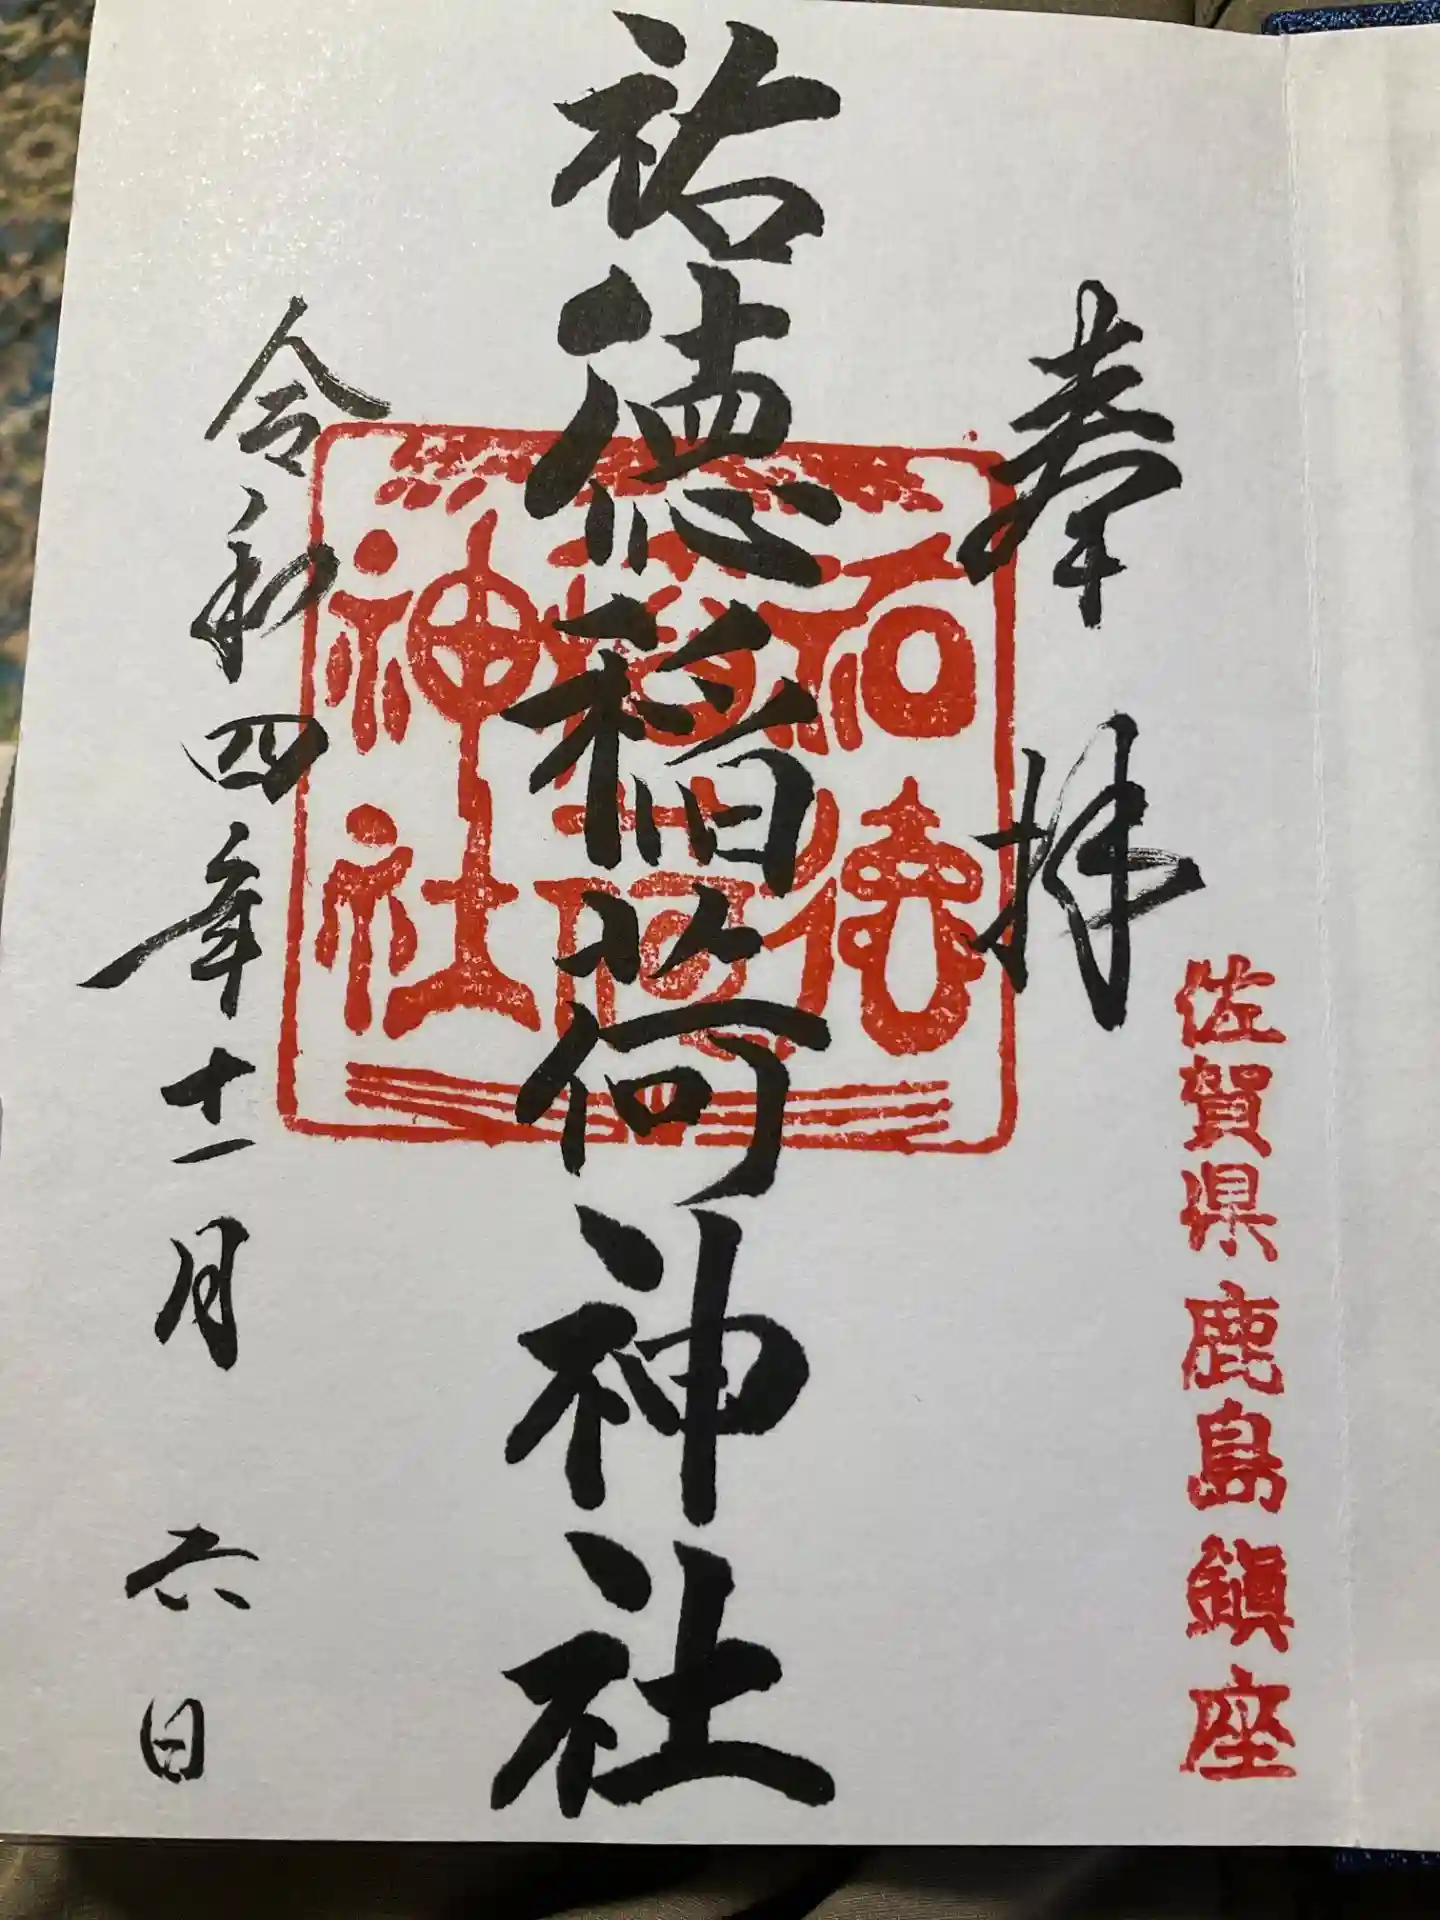 佐賀県鹿島鎮座
奉拝
祐徳稲荷神社
祐徳
稲荷
神社
令和四年十一月六日